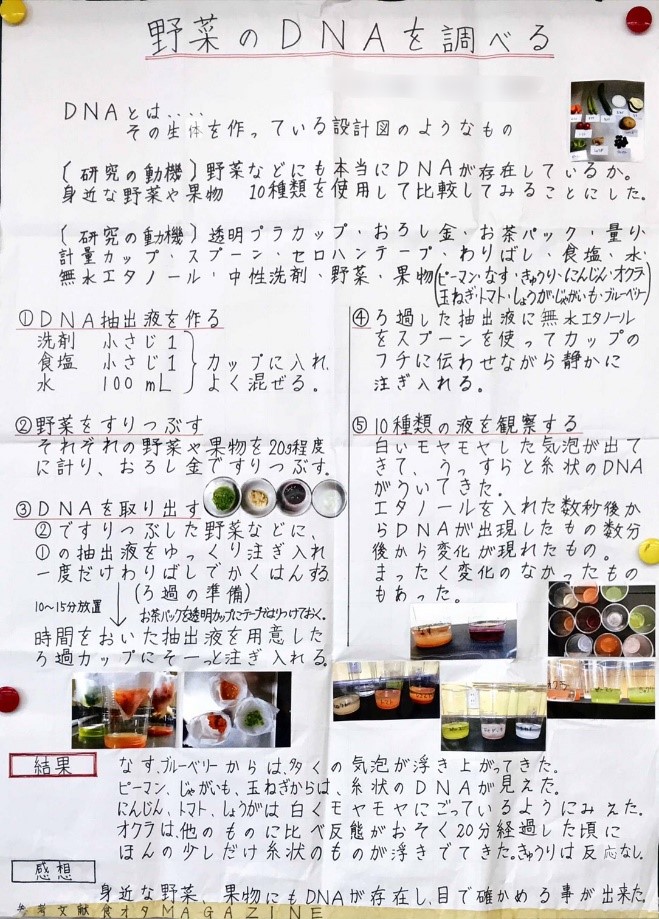 野菜のDNAを調べる
DNAとは‥‥
その生体を作っている設計図のようなもの
(研究の動機)野菜などにも本当にDNAが存在しているか。
身近な野菜や果物 10種類を使用して比較してみることにした。
(研究の動機)透明プラカップ・おろし金・お茶パック・量り・
計量カップ・スプーン・セロハンテープ・わりばし・食塩・水・
無水エタノール・中性洗剤・野菜・果物(ピーマン・なす・きゅうり・にんじん・オクラ
玉ねぎ・トマト・しょうが・じゃがいも・ブルーベリー)
①DNA抽出液を作る
洗剤 小さじ1
食塩 小さじ1
水 100mL
カップに入れ
よく混ぜる。
②野菜をすりつぶす
それぞれの野菜や果物を20g程度
に計り、おろし金ですりつぶす。
③DNAを取り出す
②ですりつぶした野菜などに、
①の抽出液をゆっくり注ぎ入れ
一度だけわりばしでかくはんする
10〜15分放置
(ろ過の準備)
お茶パックを透明カップにテープではりつけておく。
時間をおいた抽出液を用意した
ろ過カップにそーっと注ぎ入れる。
④ろ過した抽出液に無水エタノール
をスプーンを使ってカップの
フチに伝わせながら静かに
注ぎ入れる。
⑤10種類の液を観察する
白いモヤモヤした気泡が出て
きて、うっすらと糸状のDNA
がういてきた。
エタノールを入れた数秒後か
らDNAが出現したもの数分
後から変化が現れたもの。
まったく変化のなかったもの
もあった。
結果
なす、ブルーベリーからは、多くの気泡が浮き上がってきた。
ピーマン、じゃがいも、玉ねぎからは、糸状のDNAが見えた。
にんじん、トマト、しょうがは白くモヤモヤにごっているようにみえた。
オクラは、他のものに比べ反態がおそく20分経過した頃に
ほんの少しだけ糸状のものが浮きでてきた。きゅうりは反応なし。
感想
身近な野菜、果物にもDNAが存在し、目で確かめる事が出来た。
参考文献食オタMAGAZINE